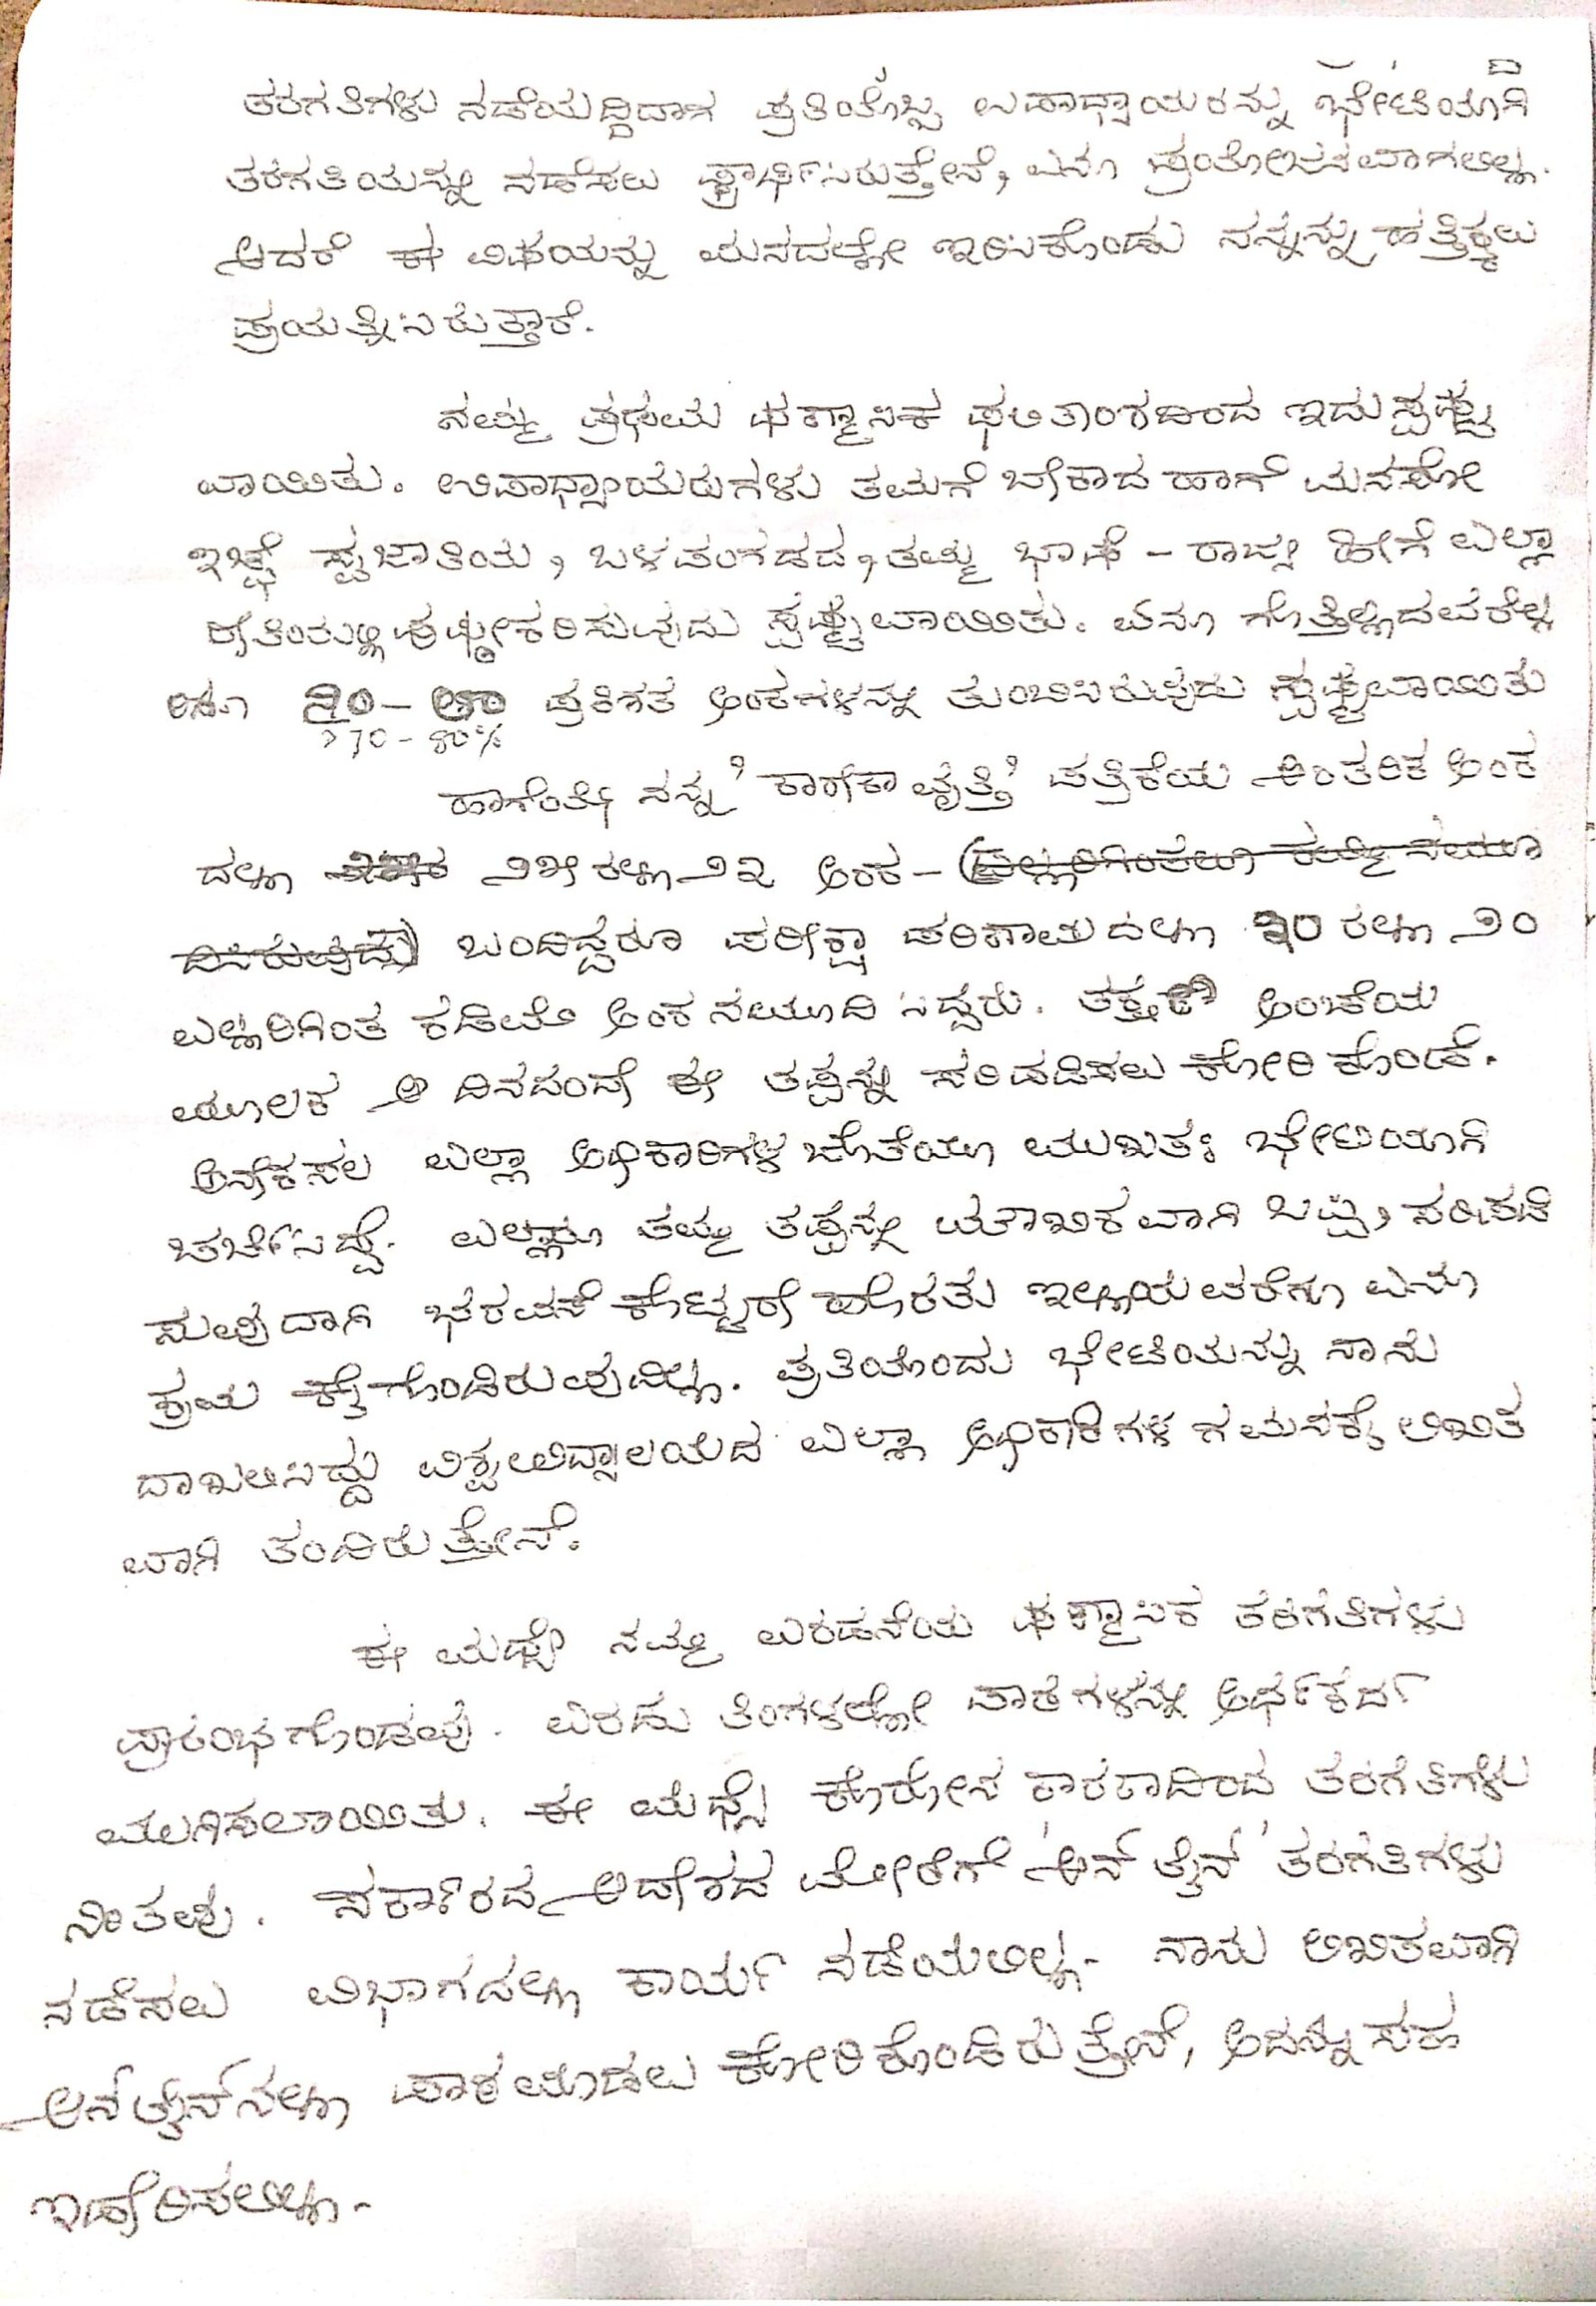 ತರಗತಿಗಳು ನಡೆಯದ್ದಿದಾಗ ಪ್ರತಿಯೊಬ್ಬ ಉಪಾಧ್ಯಾಯರನ್ನು ಭೇಟಿಯಾಗಿ
ತರಗತಿಯನ್ನು ನಡೆಸಲು ಪ್ರಾರ್ಥಿಸಿರುತ್ತೇನೆ, ಏನೂ ಪ್ರಯೋಜನವಾಗಲಿಲ್ಲ.
ಆದರೆ ಈ ವಿಷಯನ್ನು ಮನದಲ್ಲೇ ಇರಿಸಿಕೊಂಡು ನನ್ನನ್ನು ಹತ್ತಿಕ್ಕಲು
ಪ್ರಯತ್ನಿಸಿರುತ್ತಾರೆ.
ನಮ್ಮ ಪ್ರಥಮ ಷಣ್ಮಾಸಿಕ ಫಲಿತಾಂಶದಿಂದ ಇದು ಸ್ಪಷ್ಟ
ವಾಯಿತು. ಉಪಾಧ್ಯಾಯರುಗಳು ತಮಗೆ ಬೇಕಾದ ಹಾಗೆ ಮನಸೋ
ಇಚ್ಛೆ ಸ್ವಜಾತಿಯ, ಒಳಪಂಗಡದ, ತಮ್ಮ ಭಾಷೆ - ರಾಜ್ಯ ಹೀಗೆ ಎಲ್ಲಾ
ರೀತಿಯಲ್ಲಿ ಪುಷ್ಠೀಕರಿಸುವುದು ಸ್ಪಷ್ಟವಾಯಿತು. ಏನೂ ಗೊತ್ತಿಲ್ಲಿದವರೆಲ್ಲ
೭೦ - ೮೦ ಪ್ರತಿಶತ ಅಂಕಗಳನ್ನು ತುಂಬಿಸಿರುವುದು ಸ್ಪಷ್ಟವಾಯಿತು
>70 - 80%
ಹಾಗೆಯೇ ನನ್ನ 'ಕಾಶಿಕಾ ವೃತ್ತಿ' ಪತ್ರಿಕೆಯ ಆಂತರಿಕ ಅಂಕ
ದಲ್ಲಿ ೨೫ ರಲ್ಲಿ ೨೩ ಅಂಕ - (ಎಲ್ಲರಿಗಿಂತಲೂ
ಬಂದಿದ್ದರೂ ಪರೀಕ್ಷಾ ಪರಿಣಾಮದಲ್ಲಿ ೩೦ ರಲ್ಲಿ ೨೦
ಎಲ್ಲರಿಗಿಂತ ಕಡಿಮೆ ಅಂಕ ನಮೂದಿಸಿದ್ದರು. ತಕ್ಷಣ ಅಂಚೆಯ
ಮೂಲಕ ಆ ದಿನದಂದೇ ಈ ತಪ್ಪನ್ನು ಸರಿಪಡಿಸಲು ಕೋರಿಕೊಂಡೆ.
ಅನೇಕಸಲ ಎಲ್ಲಾ ಅಧಿಕಾರಿಗಳ ಜೊತೆಯೂ ಮುಖತಃ ಭೇಟಿಯಾಗಿ
ಚರ್ಚಿಸಿದ್ದೆ. ಎಲ್ಲಾರೂ ತಮ್ಮ ತಪ್ಪನ್ನು ಮೌಖಿಕವಾಗಿ ಒಪ್ಪಿ, ಸರಿಪಡಿ
ಸುವುದಾಗಿ ಭರವಸೆ ಕೊಟ್ಟರೇ ಹೊರತು ಇಲ್ಲಿಯವರೆಗೂ ಏನೂ
ಕ್ರಮ ಕೈಗೊಂಡಿರುವುದಿಲ್ಲ. ಪ್ರತಿಯೊಂದು ಭೇಟಿಯನ್ನು ನಾನು
ದಾಖಲಿಸಿದ್ದು ವಿಶ್ವವಿದ್ಯಾಲಯದ ಎಲ್ಲಾ ಅಧಿಕಾರಿಗಳ ಗಮನಕ್ಕೆ ಲಿಖಿತ
ವಾಗಿ ತಂದಿರುತ್ತೇನೆ.
ಈ ಮಧ್ಯೆ ನಮ್ಮ ಎರಡನೆಯ ಷಣ್ಮಾಸಿಕ ತರಗತಿಗಳು
ಪ್ರಾರಂಭಗೊಂಡವು. ಎರಡು ತಿಂಗಳಲ್ಲೇ ಪಾಠಗಳನ್ನು ಅರ್ಧಕರ್ಧ
ಮುಗಿಸಲಾಯಿತು. ಈ ಮಧ್ಯೆ ಕೊರೋನ ಕಾರಣದಿಂದ ತರಗತಿಗಳು
ನಿಂತವು. ಸರ್ಕಾರದ ಆದೇಶದ ಮೇರೆಗೆ 'ಆನ್ ಲೈನ್' ತರಗತಿಗಳು
ನಡೆಸಲು ವಿಭಾಗದಲ್ಲಿ ಕಾರ್ಯ ನಡೆಯಲಿಲ್ಲ. ನಾನು ಲಿಖಿತವಾಗಿ
ಆನ್‌ಲೈನ್‌ನಲ್ಲಿ ಪಾಠಮಾಡಲು ಕೋರಿಕೊಂಡಿರುತ್ತೇನೆ, ಅದನ್ನು ಸಹ
ಇಡೇರಿಸಲಿಲ್ಲ.